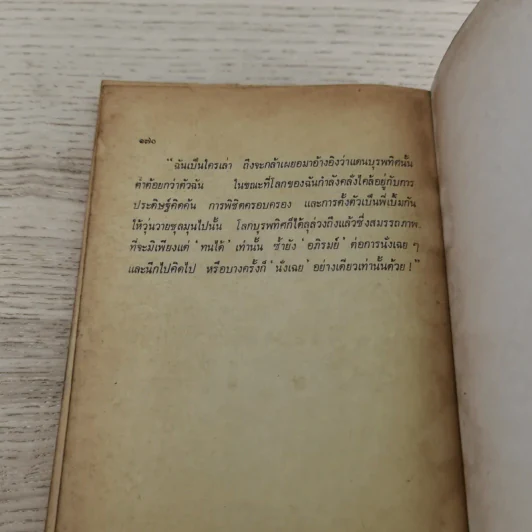 ๑๗๐
"ฉันเป็นใครเล่า ถึงจะกล้าเผยอมาอ้างอิงว่าแดนบุรพทิศนั้น
ต่ำต้อยกว่าตัวฉัน ในขณะที่โลกของฉันกำลังคลั่งไคล้อยู่กับการ
ประดิษฐ์คิดค้น การพิชิตครอบครอง และการตั้งตัวเป็นพี่เบิ้มกัน
ให้วุ่นวายชุลมุนไปนั้น โลกบุรพทิศก็ได้ลุล่วงถึงแล้วซึ่งสมรรถภาพ.
ที่จะมิเพียงแต่ 'ทนได้' เท่านั้น ซ้ำยัง 'อภิรมย์' ต่อการนั่งเฉย ๆ
และนึกไปคิดไป หรือบางครั้งก็ 'นั่งเฉย' อย่างเดียวเท่านั้นด้วย !"